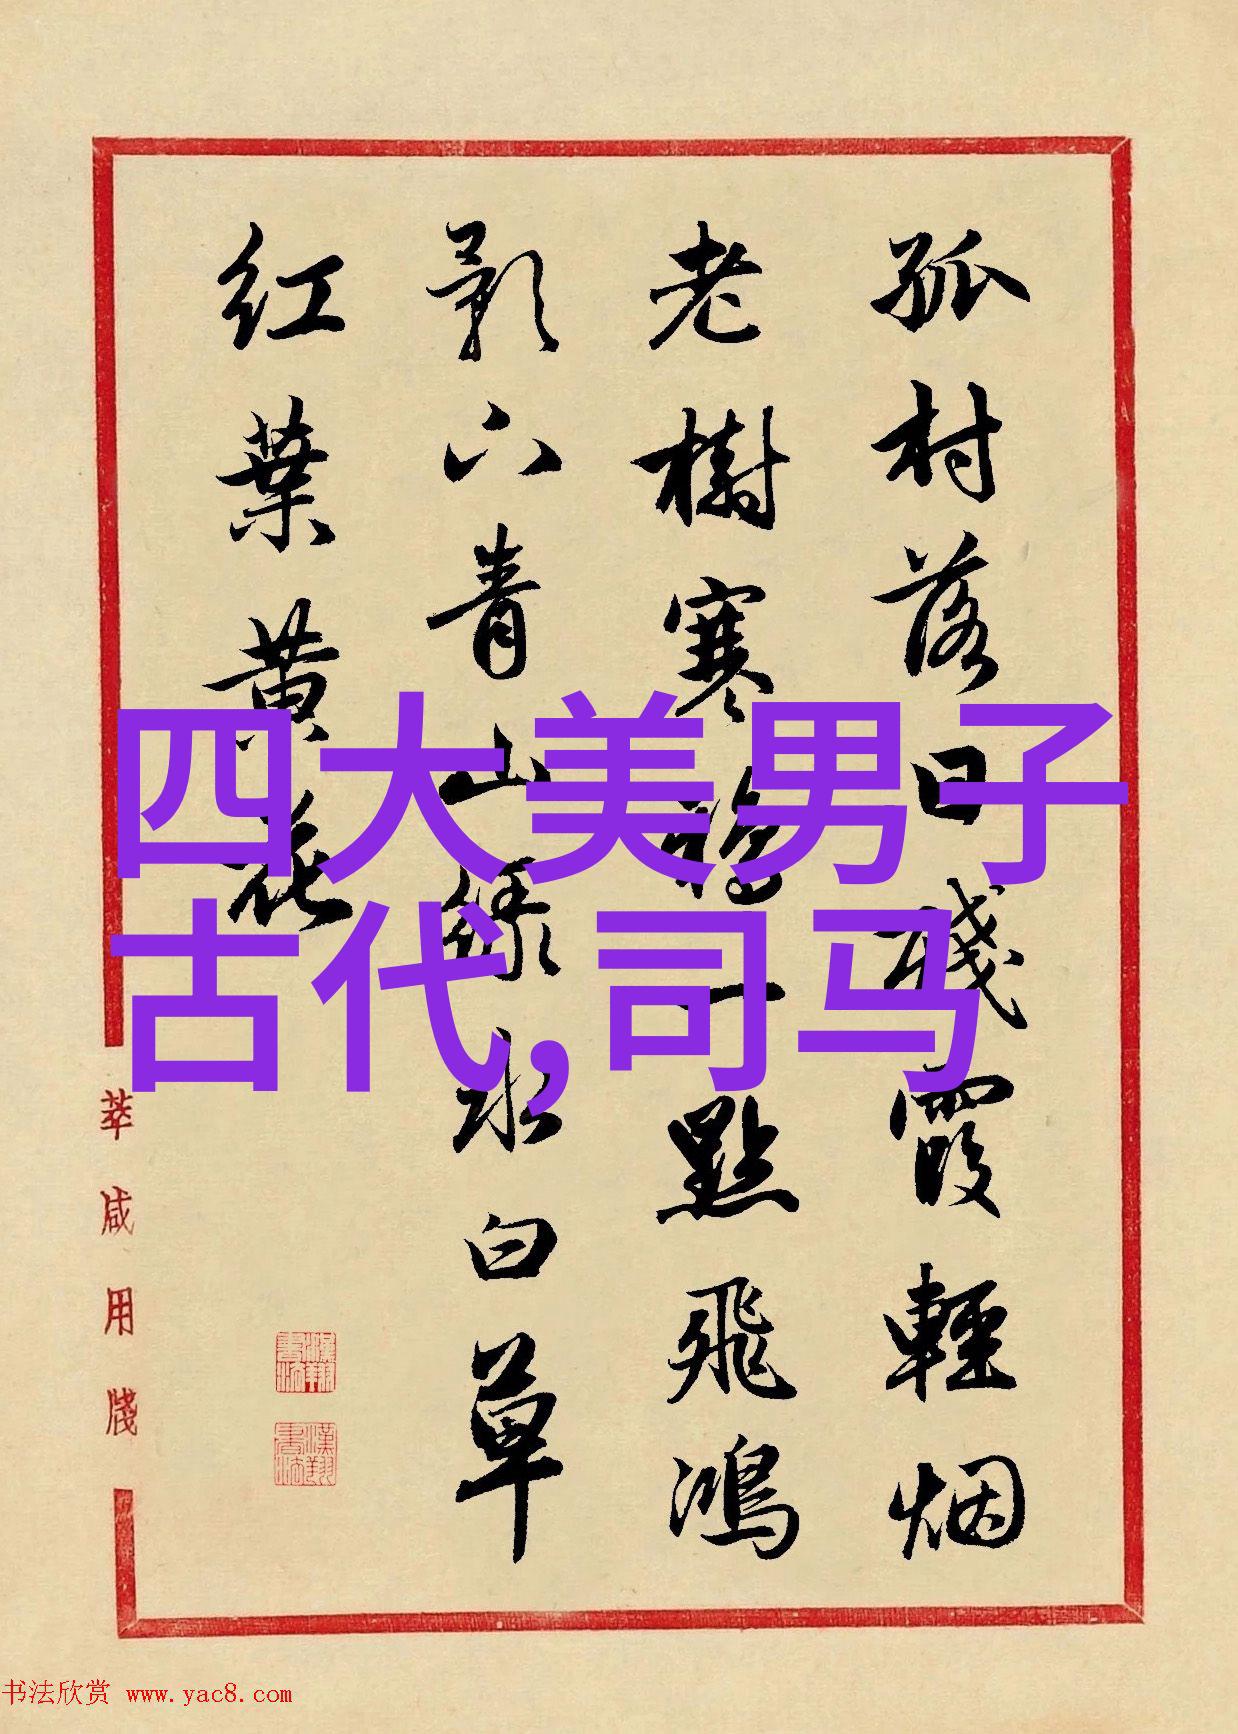 孤村落日残霞輕烟
老樹寒鴉一點飛鴻
影下青山绿水白草
红葉黄花
四大美男子
古代,司马
萃咸用牋
書法欣赏 www.yac8.com